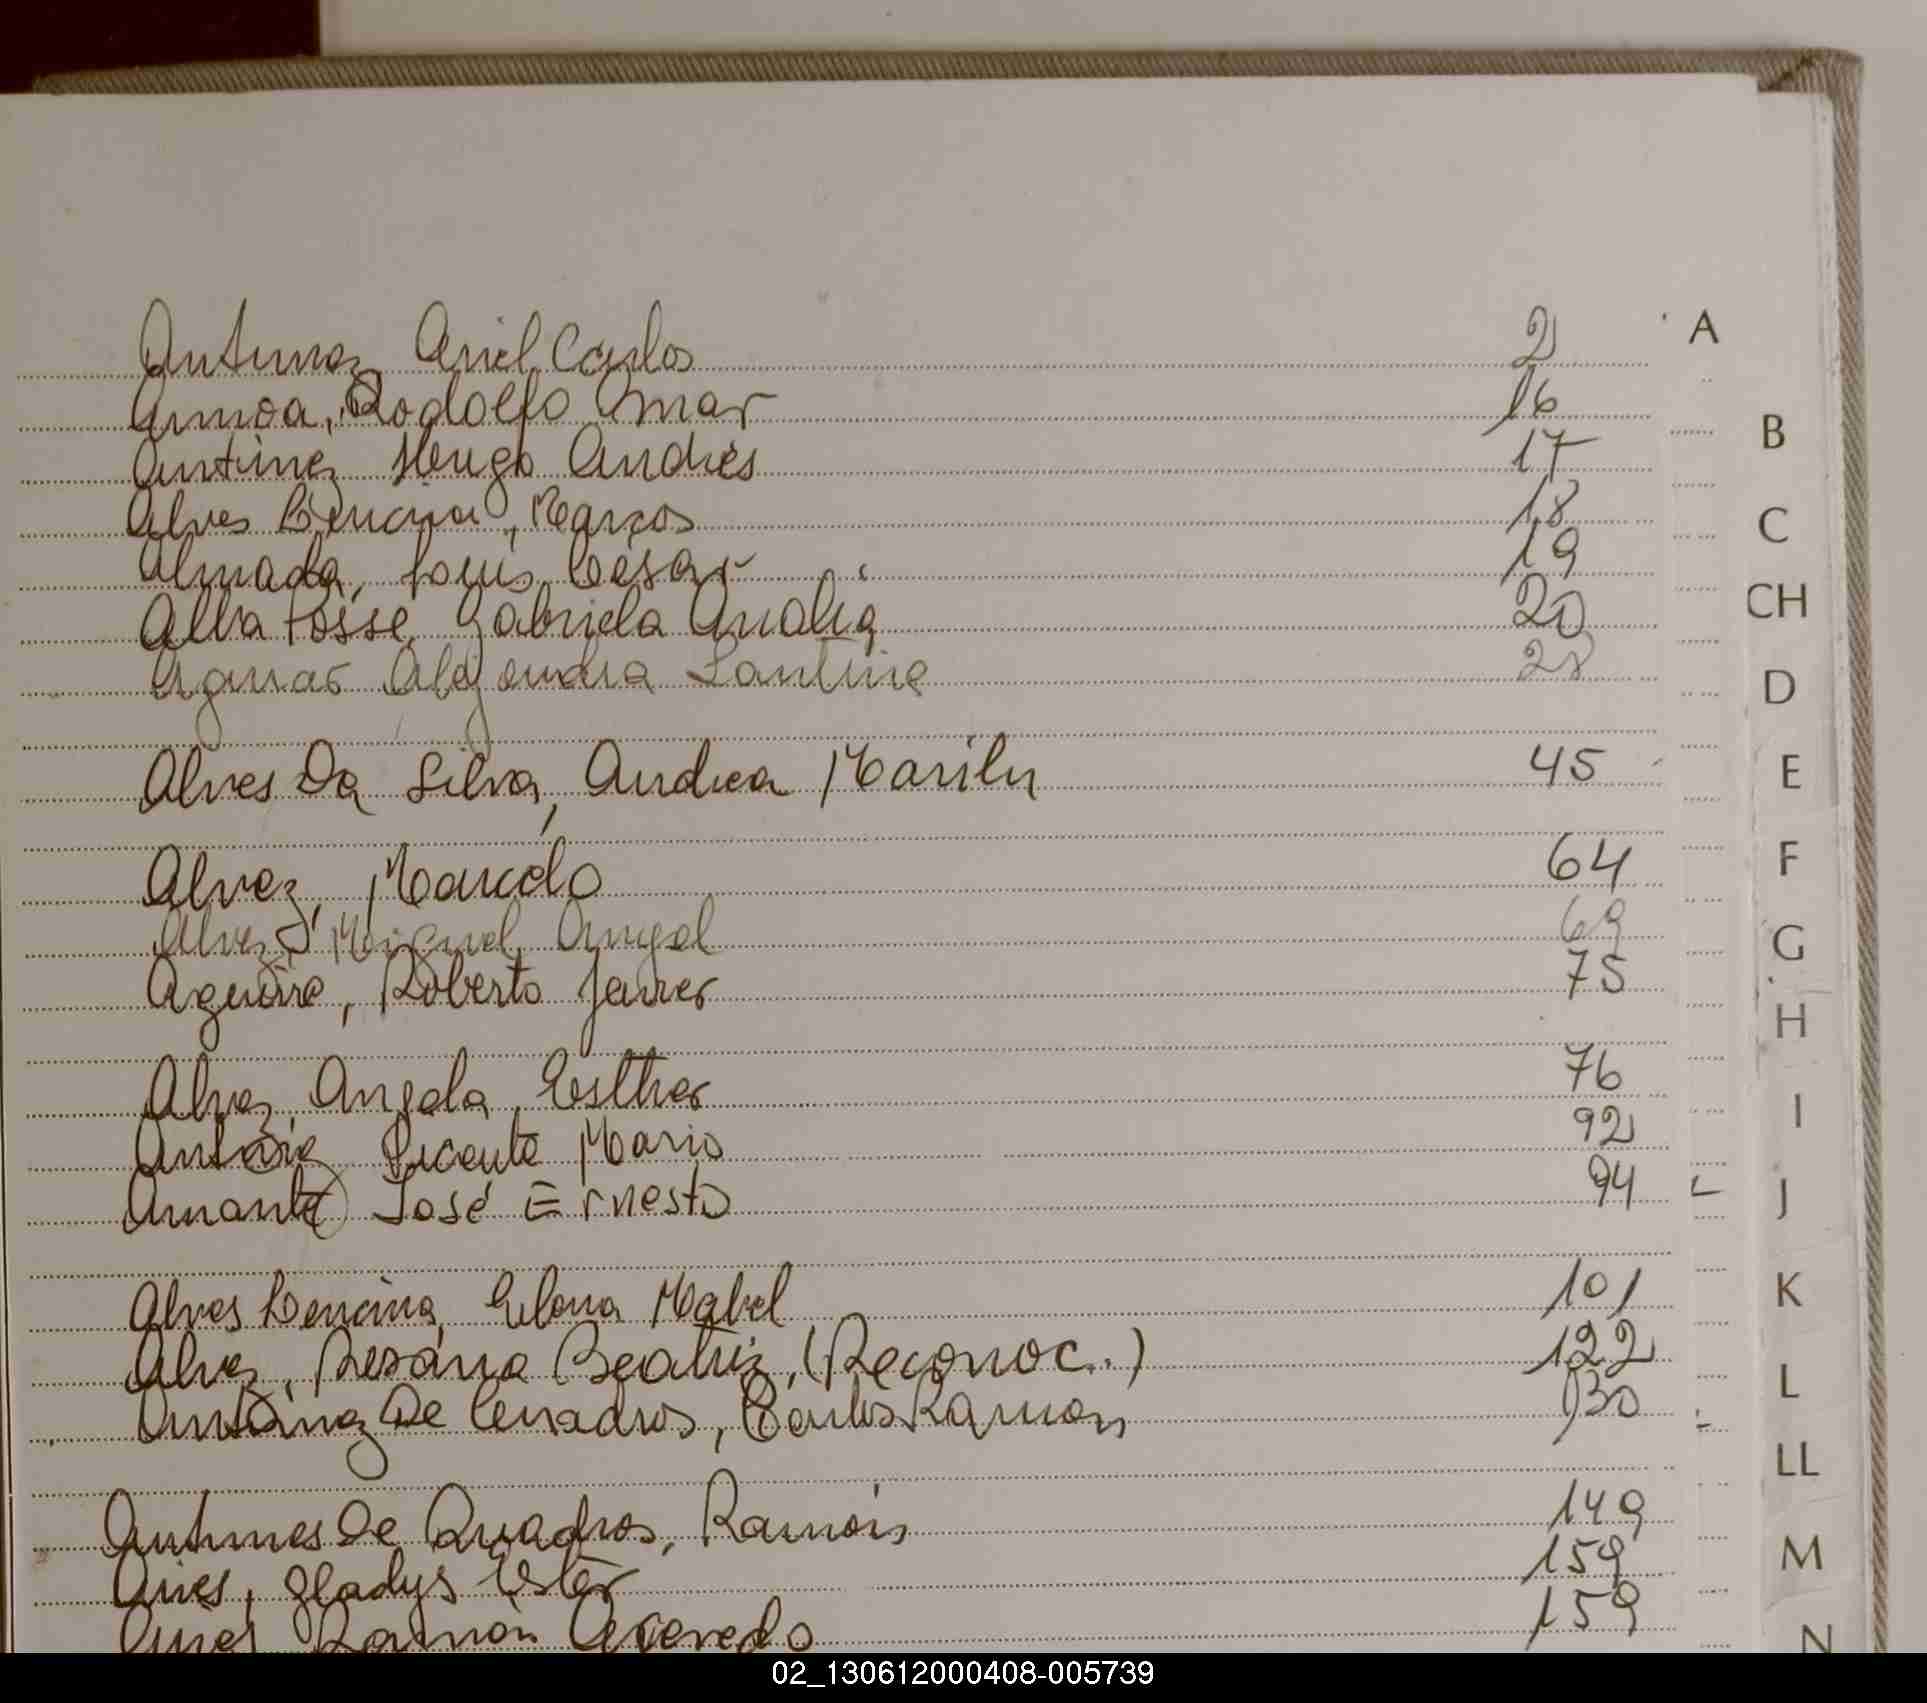 Antunez Ariel Carlos 2
Amoa, Rodolfo Omar 16
Antunez Hugo Andrés 17
Alves Bencina, Marcos 18
Almada, Louis César 19
Alba Posse, Gabriela Analia 20
Alejandra 28
Alves Da Silva, Andrea Marilu 45
Alvez, Marcelo 64
Alvez, Miguel Angel 69
Aguirre, Roberto Javier 75
Alvez Angela Esther 76
Vicente Mario 92
Amante José Ernesto 94
Alves Bencina, Elena Mabel 101
Alvez, Rosana Beatriz, (Reconoc.) 122
De Cuadros, Carlos Ramon 130
Antunes De Quadros, Ramón 149
Aires, Gladys Ester 159
Aires Ramón Acevedo 159
A
B
C
CH
D
E
F
G
H
I
J
K
L
LL
M
N
02_130612000408-005739